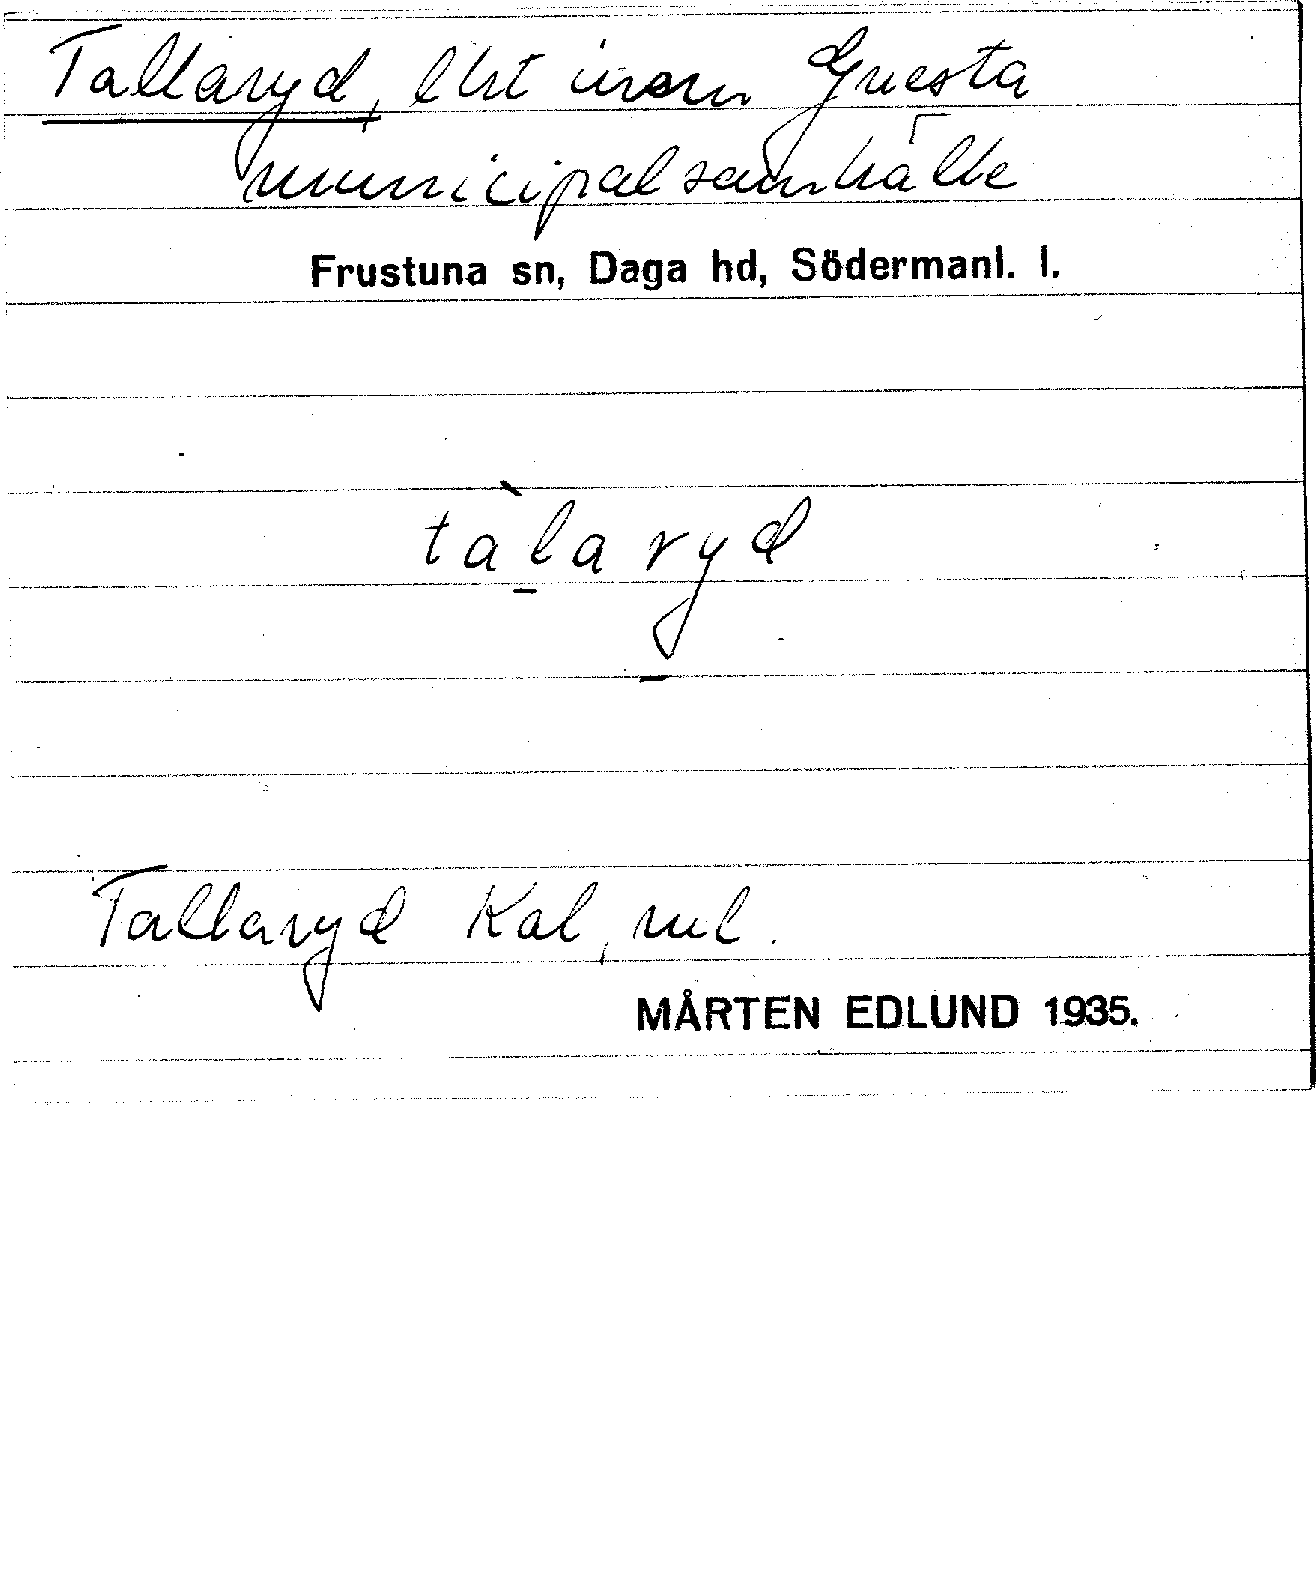 Tallaryd, lht inom Gnesta
municipalsamhälle
Frustuna sn, Daga hd, Södermanl. l.
tàlaryd
Tallaryd Kal, ml.
MÅRTEN EDLUND 1935.